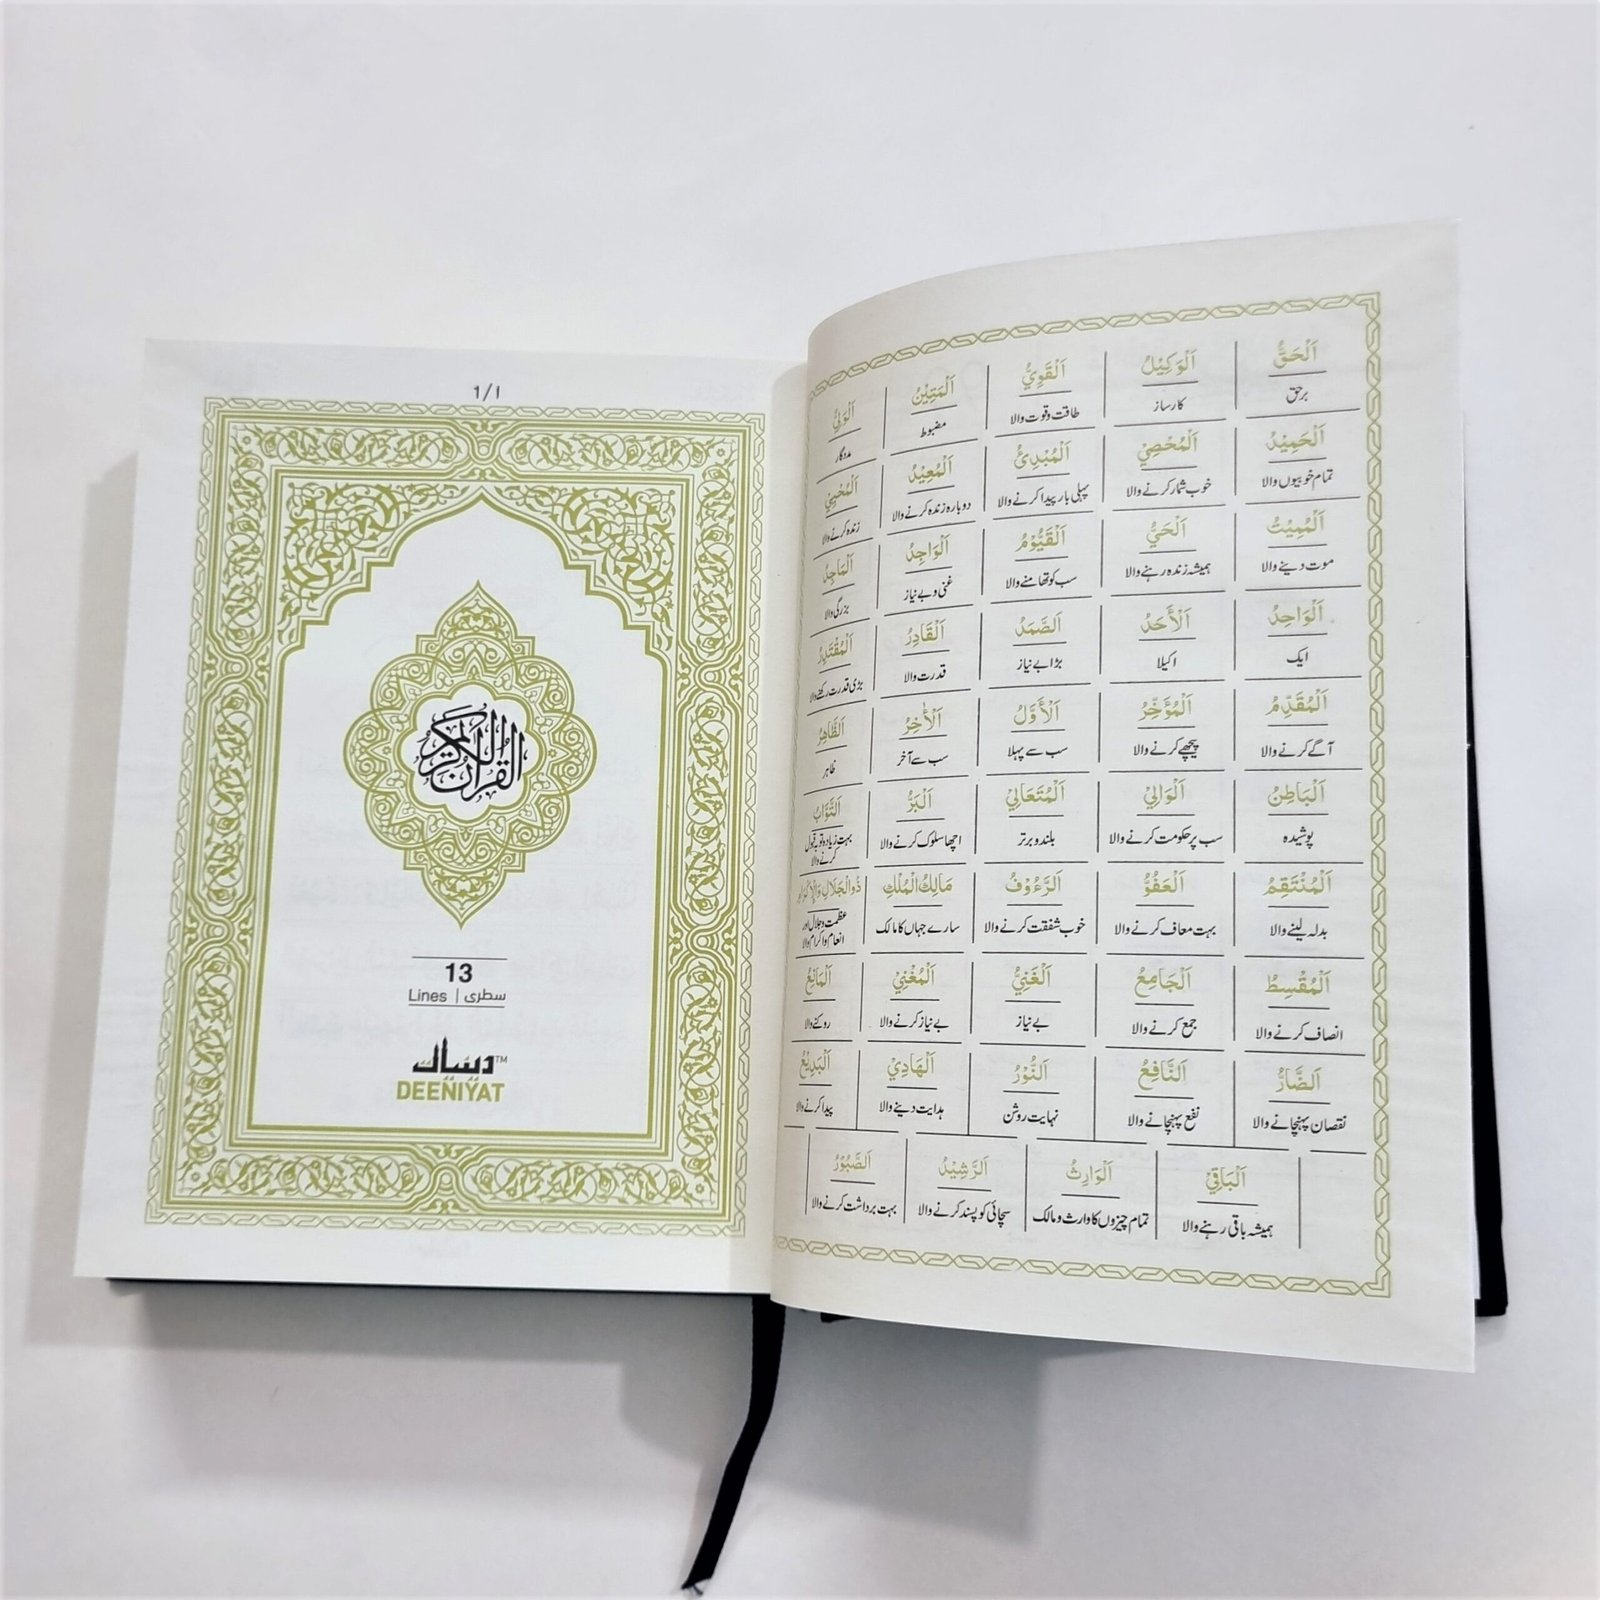 ١/١
القرآن الكريم
13
Lines | سطری
دینیات™
DEENIYAT
اَلْحَقُّ اَلْوَكِيْلُ اَلْقَوِيُّ اَلْمَتِيْنُ اَلْوَلِيُّ
برحق کارساز طاقت وقوت والا مضبوط مددگار
اَلْحَمِيْدُ اَلْمُحْصِيْ اَلْمُبْدِئُ اَلْمُعِيْدُ اَلْمُحْيِيْ
تمام خوبیوں والا خوب شمار کرنے والا پہلی بار پیدا کرنے والا دوبارہ زندہ کرنے والا زندہ کرنے والا
اَلْمُمِيْتُ اَلْحَيُّ اَلْقَيُّوْمُ اَلْوَاجِدُ اَلْمَاجِدُ
موت دینے والا ہمیشہ زندہ رہنے والا سب کو تھامنے والا غنی و بے نیاز بزرگی والا
اَلْوَاحِدُ اَلْأَحَدُ اَلصَّمَدُ اَلْقَادِرُ اَلْمُقْتَدِرُ
ایک اکیلا بڑا بے نیاز قدرت والا بڑی قدرت رکھنے والا
اَلْمُقَدِّمُ اَلْمُؤَخِّرُ اَلْأَوَّلُ اَلْأٰخِرُ اَلظَّاهِرُ
آگے کرنے والا پیچھے کرنے والا سب سے پہلا سب سے آخر ظاہر
اَلْبَاطِنُ اَلْوَالِيْ اَلْمُتَعَالِيْ اَلْبَرُّ اَلتَّوَّابُ
پوشیدہ سب پر حکومت کرنے والا بلند و برتر اچھا سلوک کرنے والا بہت زیادہ توبہ قبول کرنے والا
اَلْمُنْتَقِمُ اَلْعَفُوُّ اَلرَّءُوْفُ مَالِكُ الْمُلْكِ ذُوالْجَلَالِ وَالْإِكْرَامِ
بدلہ لینے والا بہت معاف کرنے والا خوب شفقت کرنے والا سارے جہاں کا مالک عظمت و جلال اور انعام و اکرام والا
اَلْمُقْسِطُ اَلْجَامِعُ اَلْغَنِيُّ اَلْمُغْنِيْ اَلْمَانِعُ
انصاف کرنے والا جمع کرنے والا بے نیاز بے نیاز کرنے والا روکنے والا
اَلضَّارُّ اَلنَّافِعُ اَلنُّوْرُ اَلْهَادِيْ اَلْبَدِيْعُ
نقصان پہنچانے والا نفع پہنچانے والا نہایت روشن ہدایت دینے والا پیدا کرنے والا
اَلْبَاقِيْ اَلْوَارِثُ اَلرَّشِيْدُ اَلصَّبُوْرُ
ہمیشہ باقی رہنے والا تمام چیزوں کا وارث و مالک سچائی کو پسند کرنے والا بہت برداشت کرنے والا